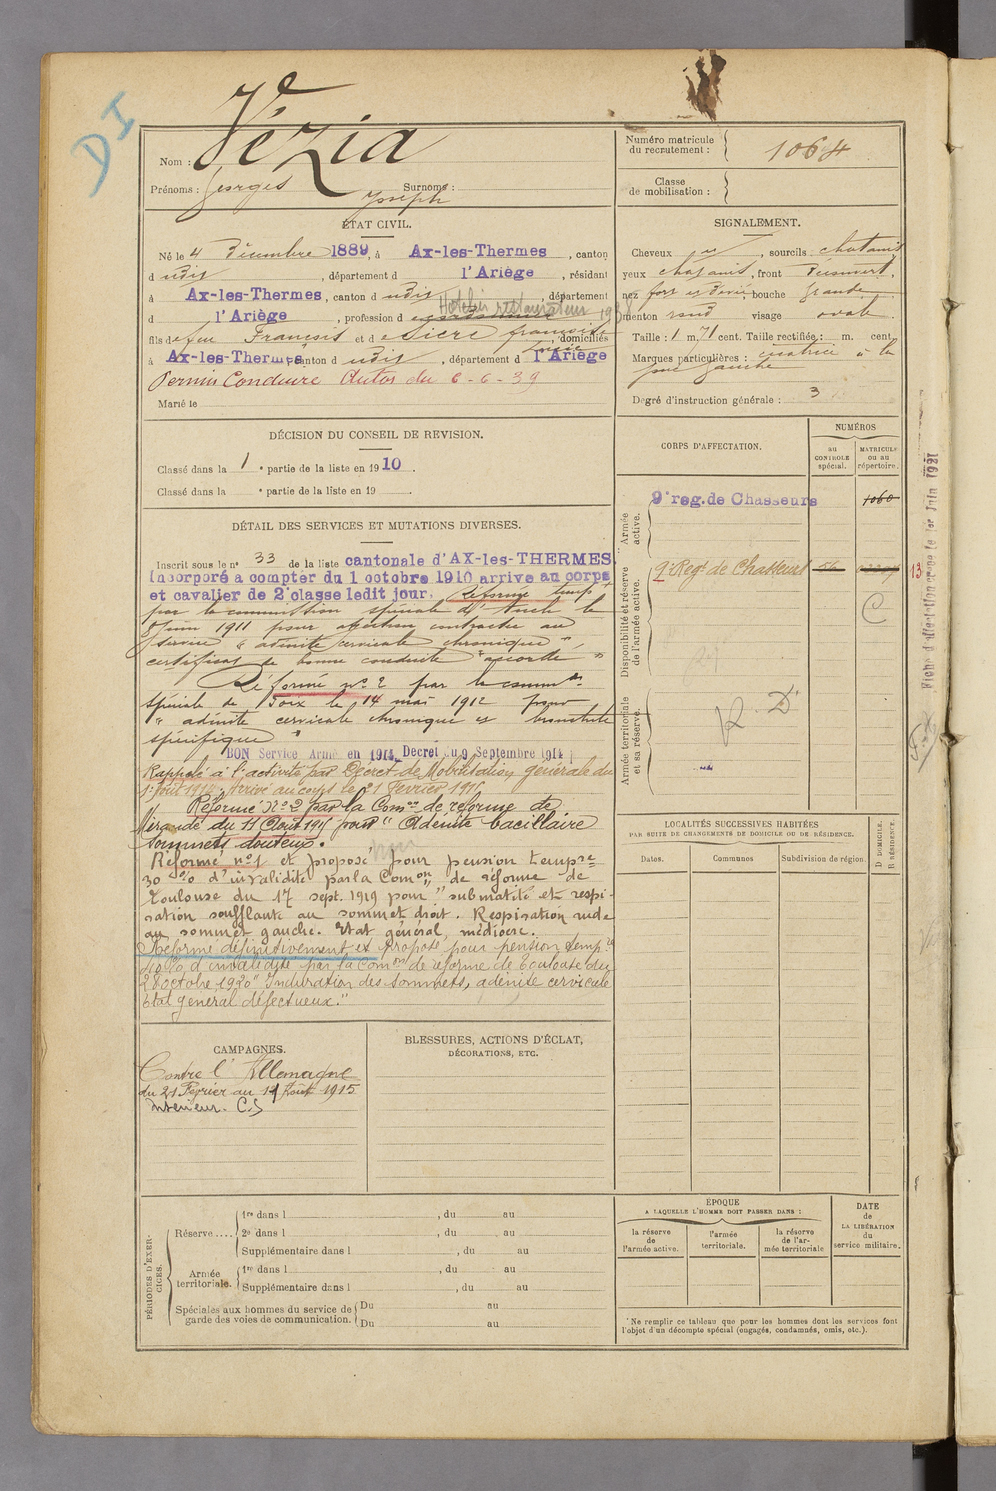 DI
Nom : Vézia
Prénoms : Georges Joseph Surnoms :
Numéro matricule du recrutement : 1064
Classe de mobilisation :
ÉTAT CIVIL.
Né le 4 Décembre 1889, à Ax-les-Thermes, canton
dudit, département d l'Ariège, résidant
à Ax-les-Thermes, canton dudit, département
d l'Ariège, profession d Hotelier restaurateur
fils de feu Francois et de Sicre françoise, domiciliés
à Ax-les-Thermes, canton dudit, département d l'Ariège
Permis Conduire Autos du 6-6-39
Marié le
SIGNALEMENT.
Cheveux, sourcils chatains
yeux chatains, front
nez fort et dévié bouche grande
menton rond visage ovale
Taille : 1 m. 71 cent. Taille rectifiée : m. cent.
Marques particulières : cicatrice à la
joue gauche
Degré d'instruction générale : 3
DÉCISION DU CONSEIL DE REVISION.
Classé dans la 1e partie de la liste en 1910.
Classé dans la e partie de la liste en 19 .
DÉTAIL DES SERVICES ET MUTATIONS DIVERSES.
Inscrit sous le n° 33 de la liste cantonale d'AX-les-THERMES
Incorporé a compter du 1 octobre 1910 arrive au corps
et cavalier de 2e classe ledit jour. Réformé temp
par la commission spéciale d'Auch le
8 Juin 1911 pour affection contractée au
service "adénite cervicale chronique"
certificat de bonne conduite "accordé"
Réformé n° 2 par la comm
spéciale de Foix le 14 mai 1912 pour
"adénite cervicale chronique et bronchite
spécifique"
BON Service Armé en 1914, Décret du 9 Septembre 1914
Rappelé à l'activité par Décret de Mobilisation générale du
1er Août 1914. Arrivé au corps le 21 Février 1915
Réformé N° 2 par la Comon de réforme de
Mirande du 11 Août 1915 pour "Adénite bacillaire
sommets douteux.
Réformé n° 1 et proposé pour pension tempre
30 % d'invalidité par la Comon de réforme de
Toulouse du 17 sept. 1919 pour "submatité et respi-
ration soufflante au sommet droit. Respiration rude
au sommet gauche. Etat général médiocre.
Réformé définitivement et proposé pour pension temp
40 % d'invalidité par la Comon de réforme de Toulouse du
28 octobre 1920 "Induration des sommets, adénite cervicale
Etat général défectueux."
CORPS D'AFFECTATION.
NUMÉROS
au CONTROLE spécial.
MATRICULE ou au répertoire.
Armée active.
9e reg. de Chasseurs 1060
Disponibilité et réserve de l'armée active.
9e Regt de Chasseurs 56
13
C
Armée territoriale et sa réserve.
R. D.
Fiche d'affectation créée le 1er Juin 1921
LOCALITÉS SUCCESSIVES HABITÉES
PAR SUITE DE CHANGEMENTS DE DOMICILE OU DE RÉSIDENCE.
Dates.
Communes
Subdivision de région.
D DOMICILE.
R RÉSIDENCE.
CAMPAGNES.
Contre l'Allemagne
du 21 Février au 11 Août 1915
Intérieur. C.S
BLESSURES, ACTIONS D'ÉCLAT,
DÉCORATIONS, ETC.
PÉRIODES D'EXERCICES.
Réserve ....
1re dans l , du au
2e dans l , du au
Supplémentaire dans l , du au
Armée territoriale.
1re dans l , du au
Supplémentaire dans l , du au
Spéciales aux hommes du service de garde des voies de communication.
Du au
Du au
ÉPOQUE
A LAQUELLE L'HOMME DOIT PASSER DANS :
la réserve de l'armée active.
l'armée territoriale.
la réserve de l'armée territoriale
DATE de LA LIBÉRATION du service militaire.
Ne remplir ce tableau que pour les hommes dont les services font
l'objet d'un décompte spécial (engagés, condamnés, omis, etc.).